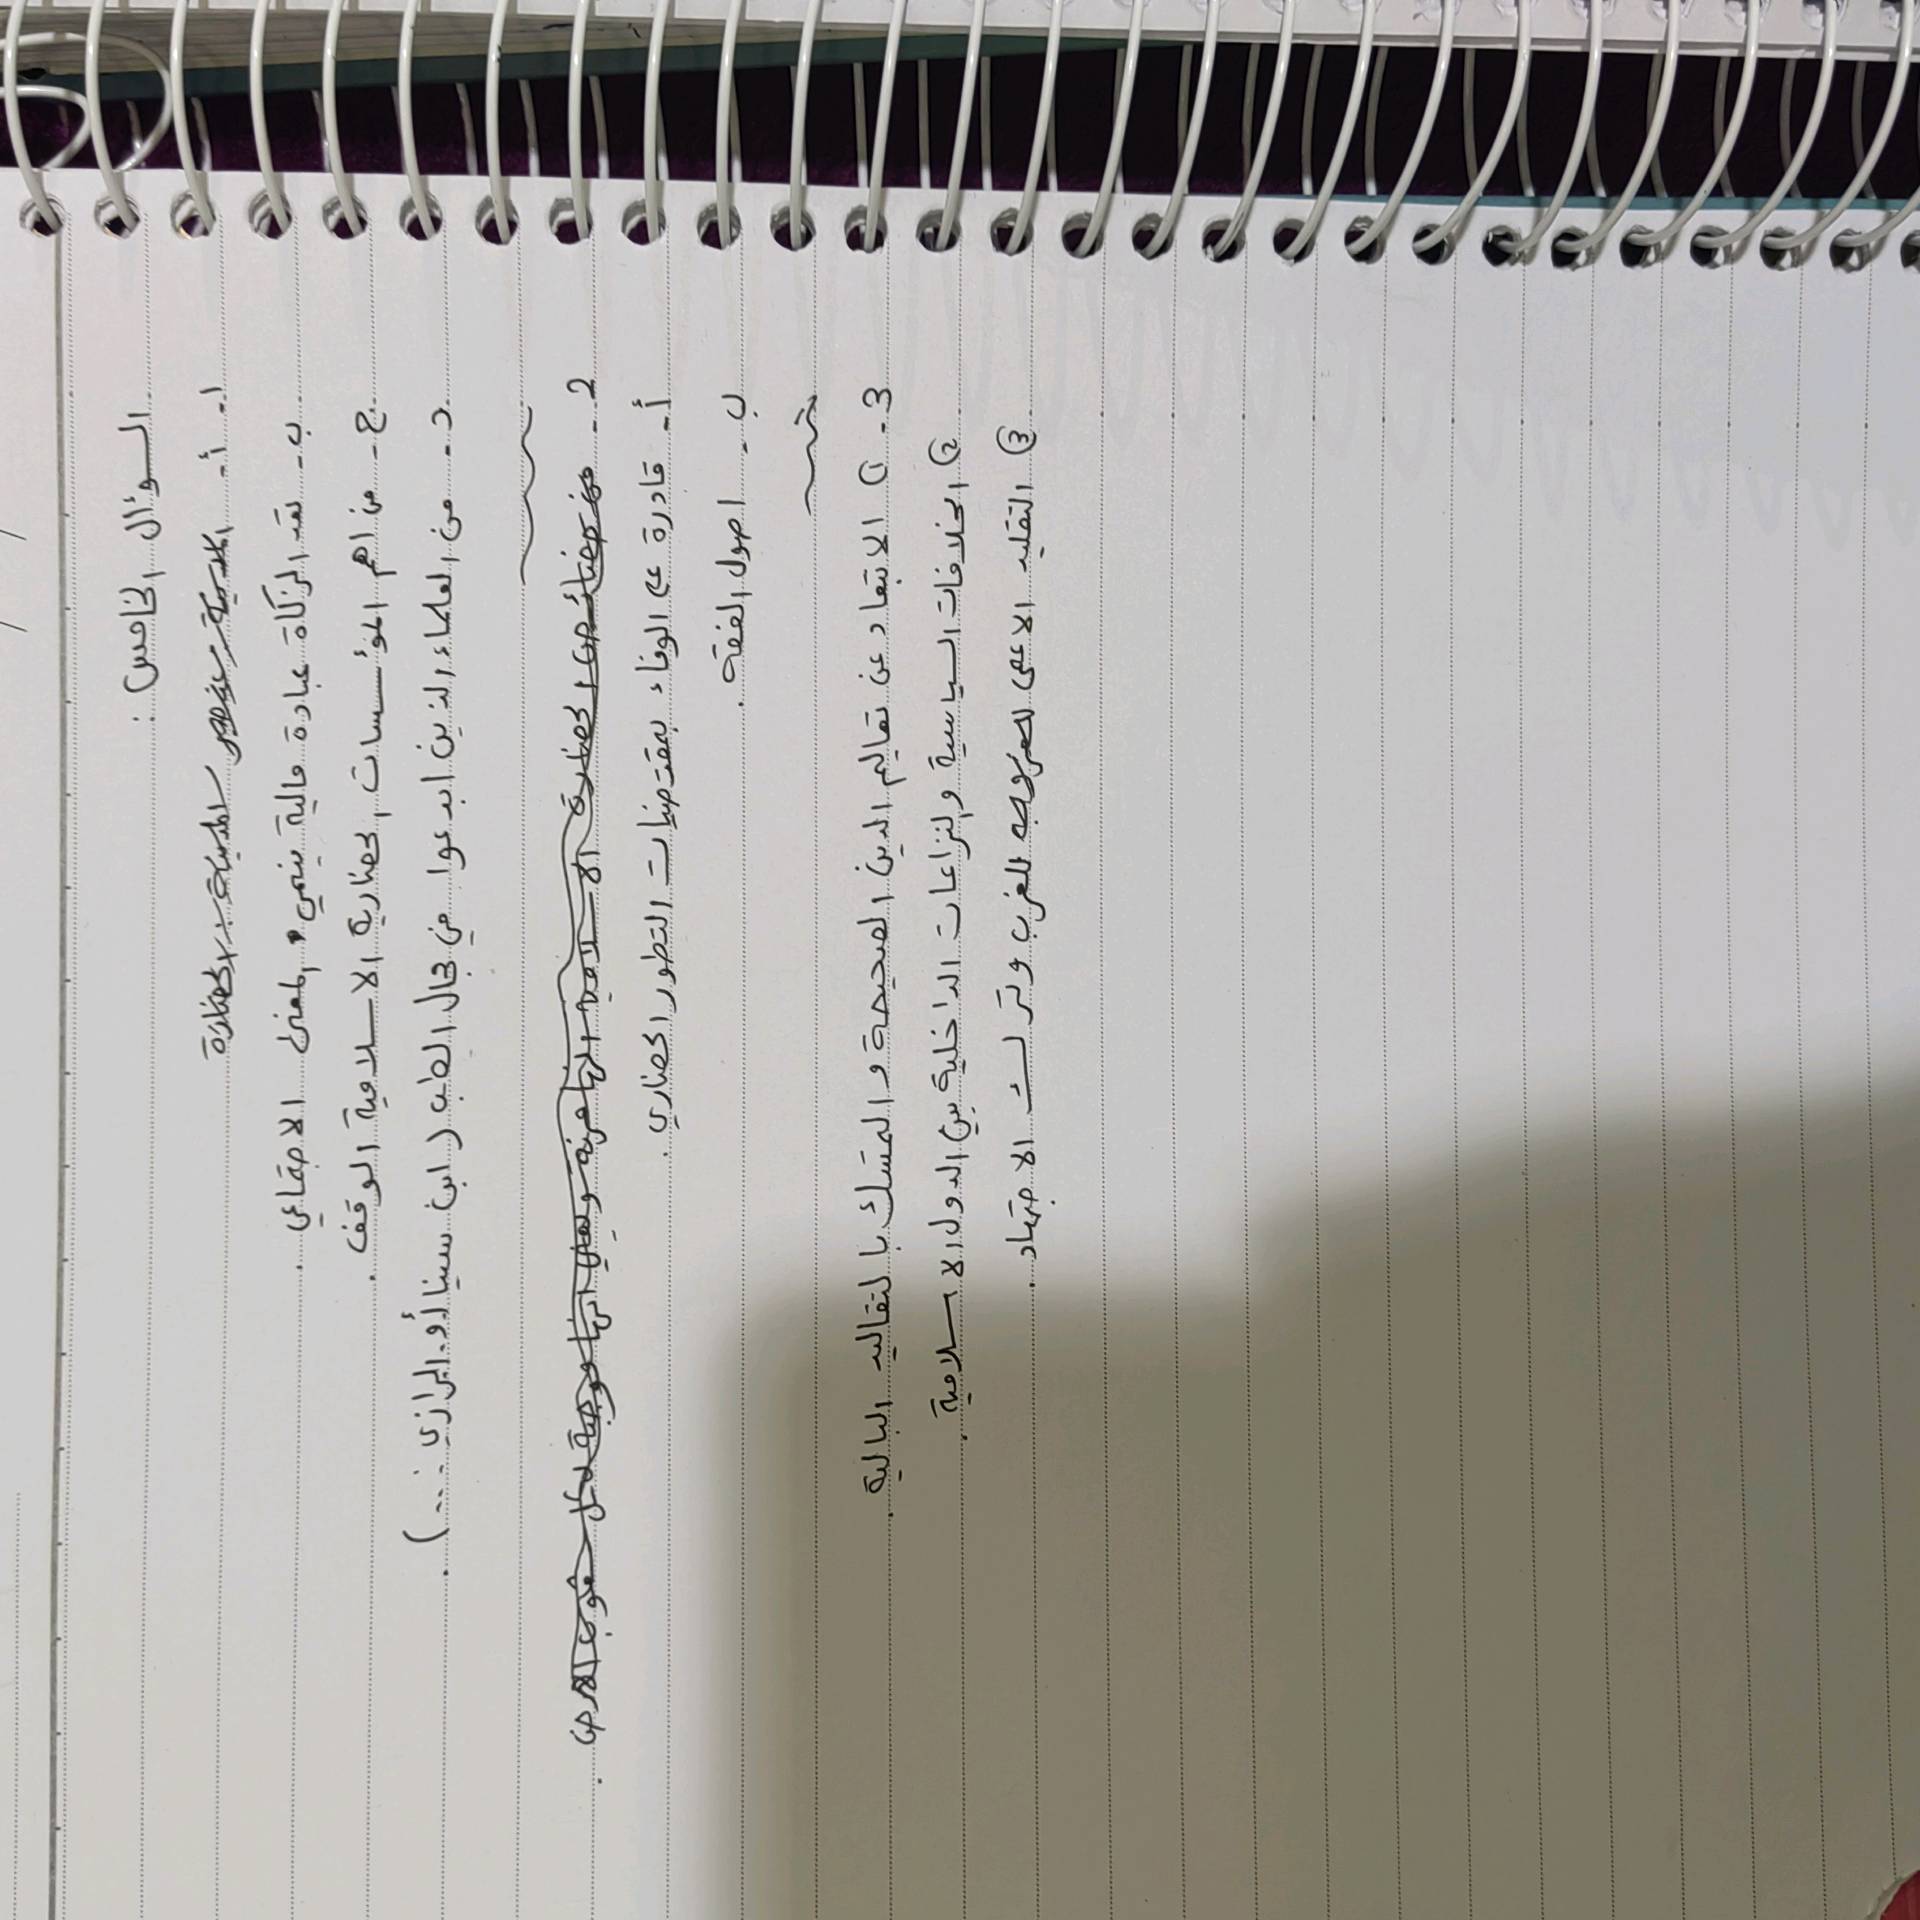 السؤال الخامس :
1- أ-
ب- تعد الزكاة عبادة مالية ينمي المعنى الاجتماعي .
ج- من اهم المؤسسات الحضارية الاسلامية الوقف .
د- من العلماء الذين ابدعوا في مجال الطب ( ابن سينا أو الرازي ... ) .
2- من خصائص الحضارة الاسلامية انها مرنة وهي انها موجهة لكل شعوب الارض .
أ- قادرة ع الوفاء بمقتضيات التطور الحضاري .
ب- اصول الفقه .
3- ① الابتعاد عن تعاليم الدين الصحيحة و التمسك بالتقاليد البالية .
② الخلافات السياسية والنزاعات الداخلية بين الدول الاسلامية .
③ التقليد الاعمى للغرب وترك الاجتهاد .